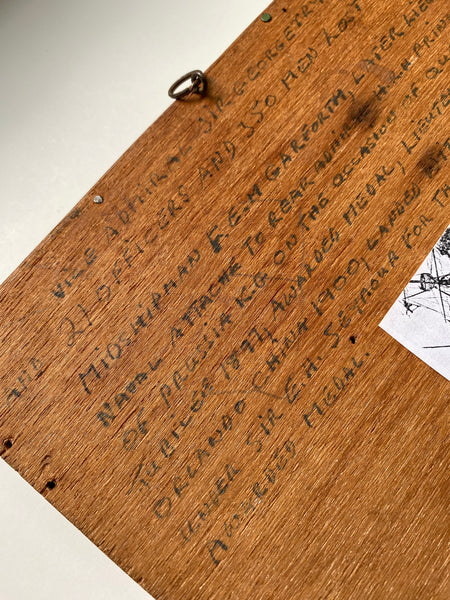 VICE ADMIRAL SIR GEORGE TRY
AND 21 OFFICERS AND 350 MEN LOST
MIDSHIPMAN F.E.M GARFORTH, LATER LIEU
NAVAL ATTACHE TO REAR ADMIRAL PRIN
OF PRUSSIA K.G. ON THE OCCASION OF QU
JUBILEE 1897, AWARDED MEDAL, LIEUTE
ORLANDO CHINA 1900, LANDED WITH
UNDER SIR E.H. SEYMOUR FOR TH
AWARDED MEDAL.